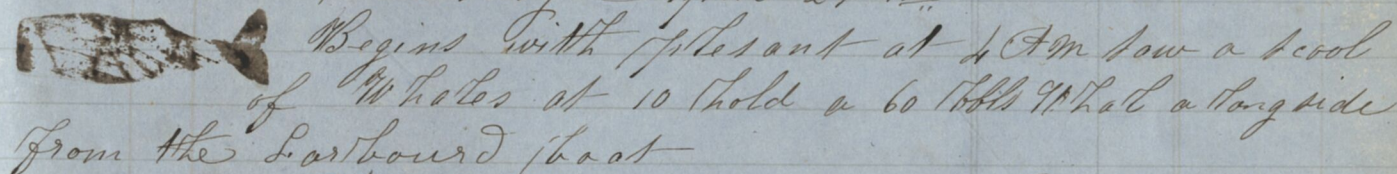 Begins with plesant at 4 AM saw a scool
of Whales at 10 hold a 60 bbls Whal a longside
from the Larbourd boat